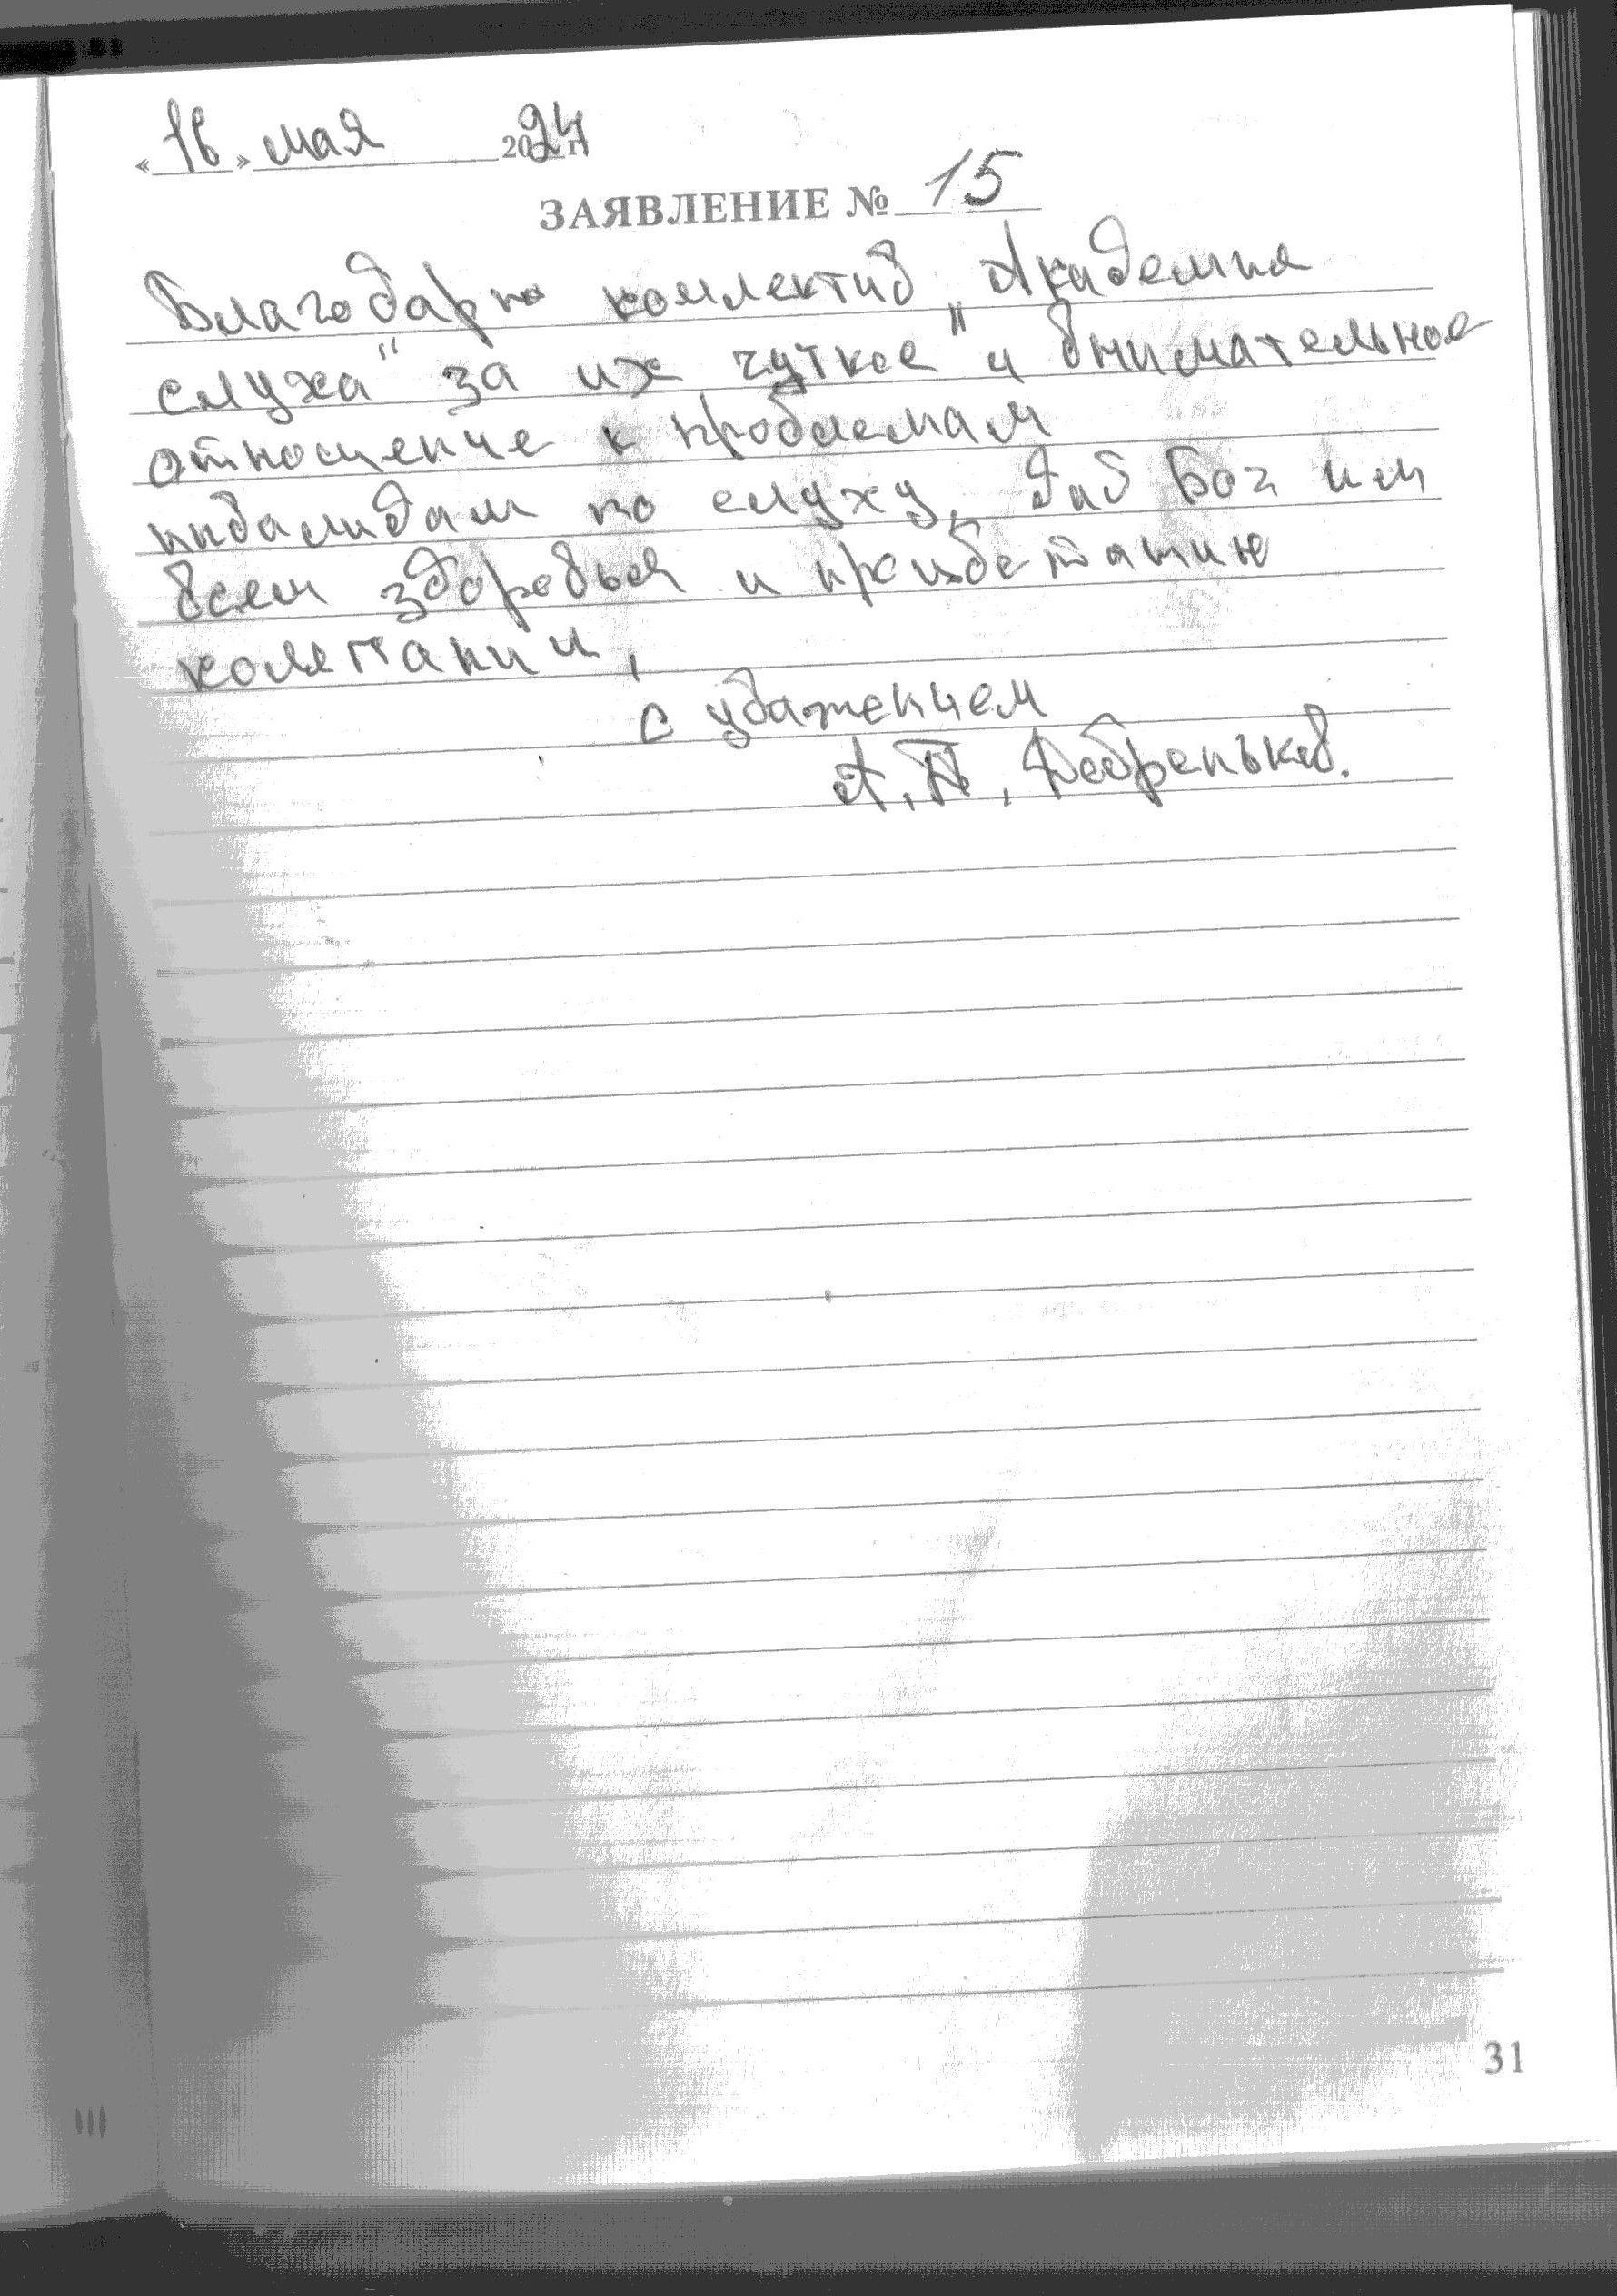 «16» мая 2024 г.
ЗАЯВЛЕНИЕ № 15
Благодарю коллектив „Академия
слуха" за их чуткое и внимательное
отношение к проблемам
инвалидам по слуху, Дай Бог им
всем здоровья и процветанию
компании,
с уважением
А. П. Добреньков.
31